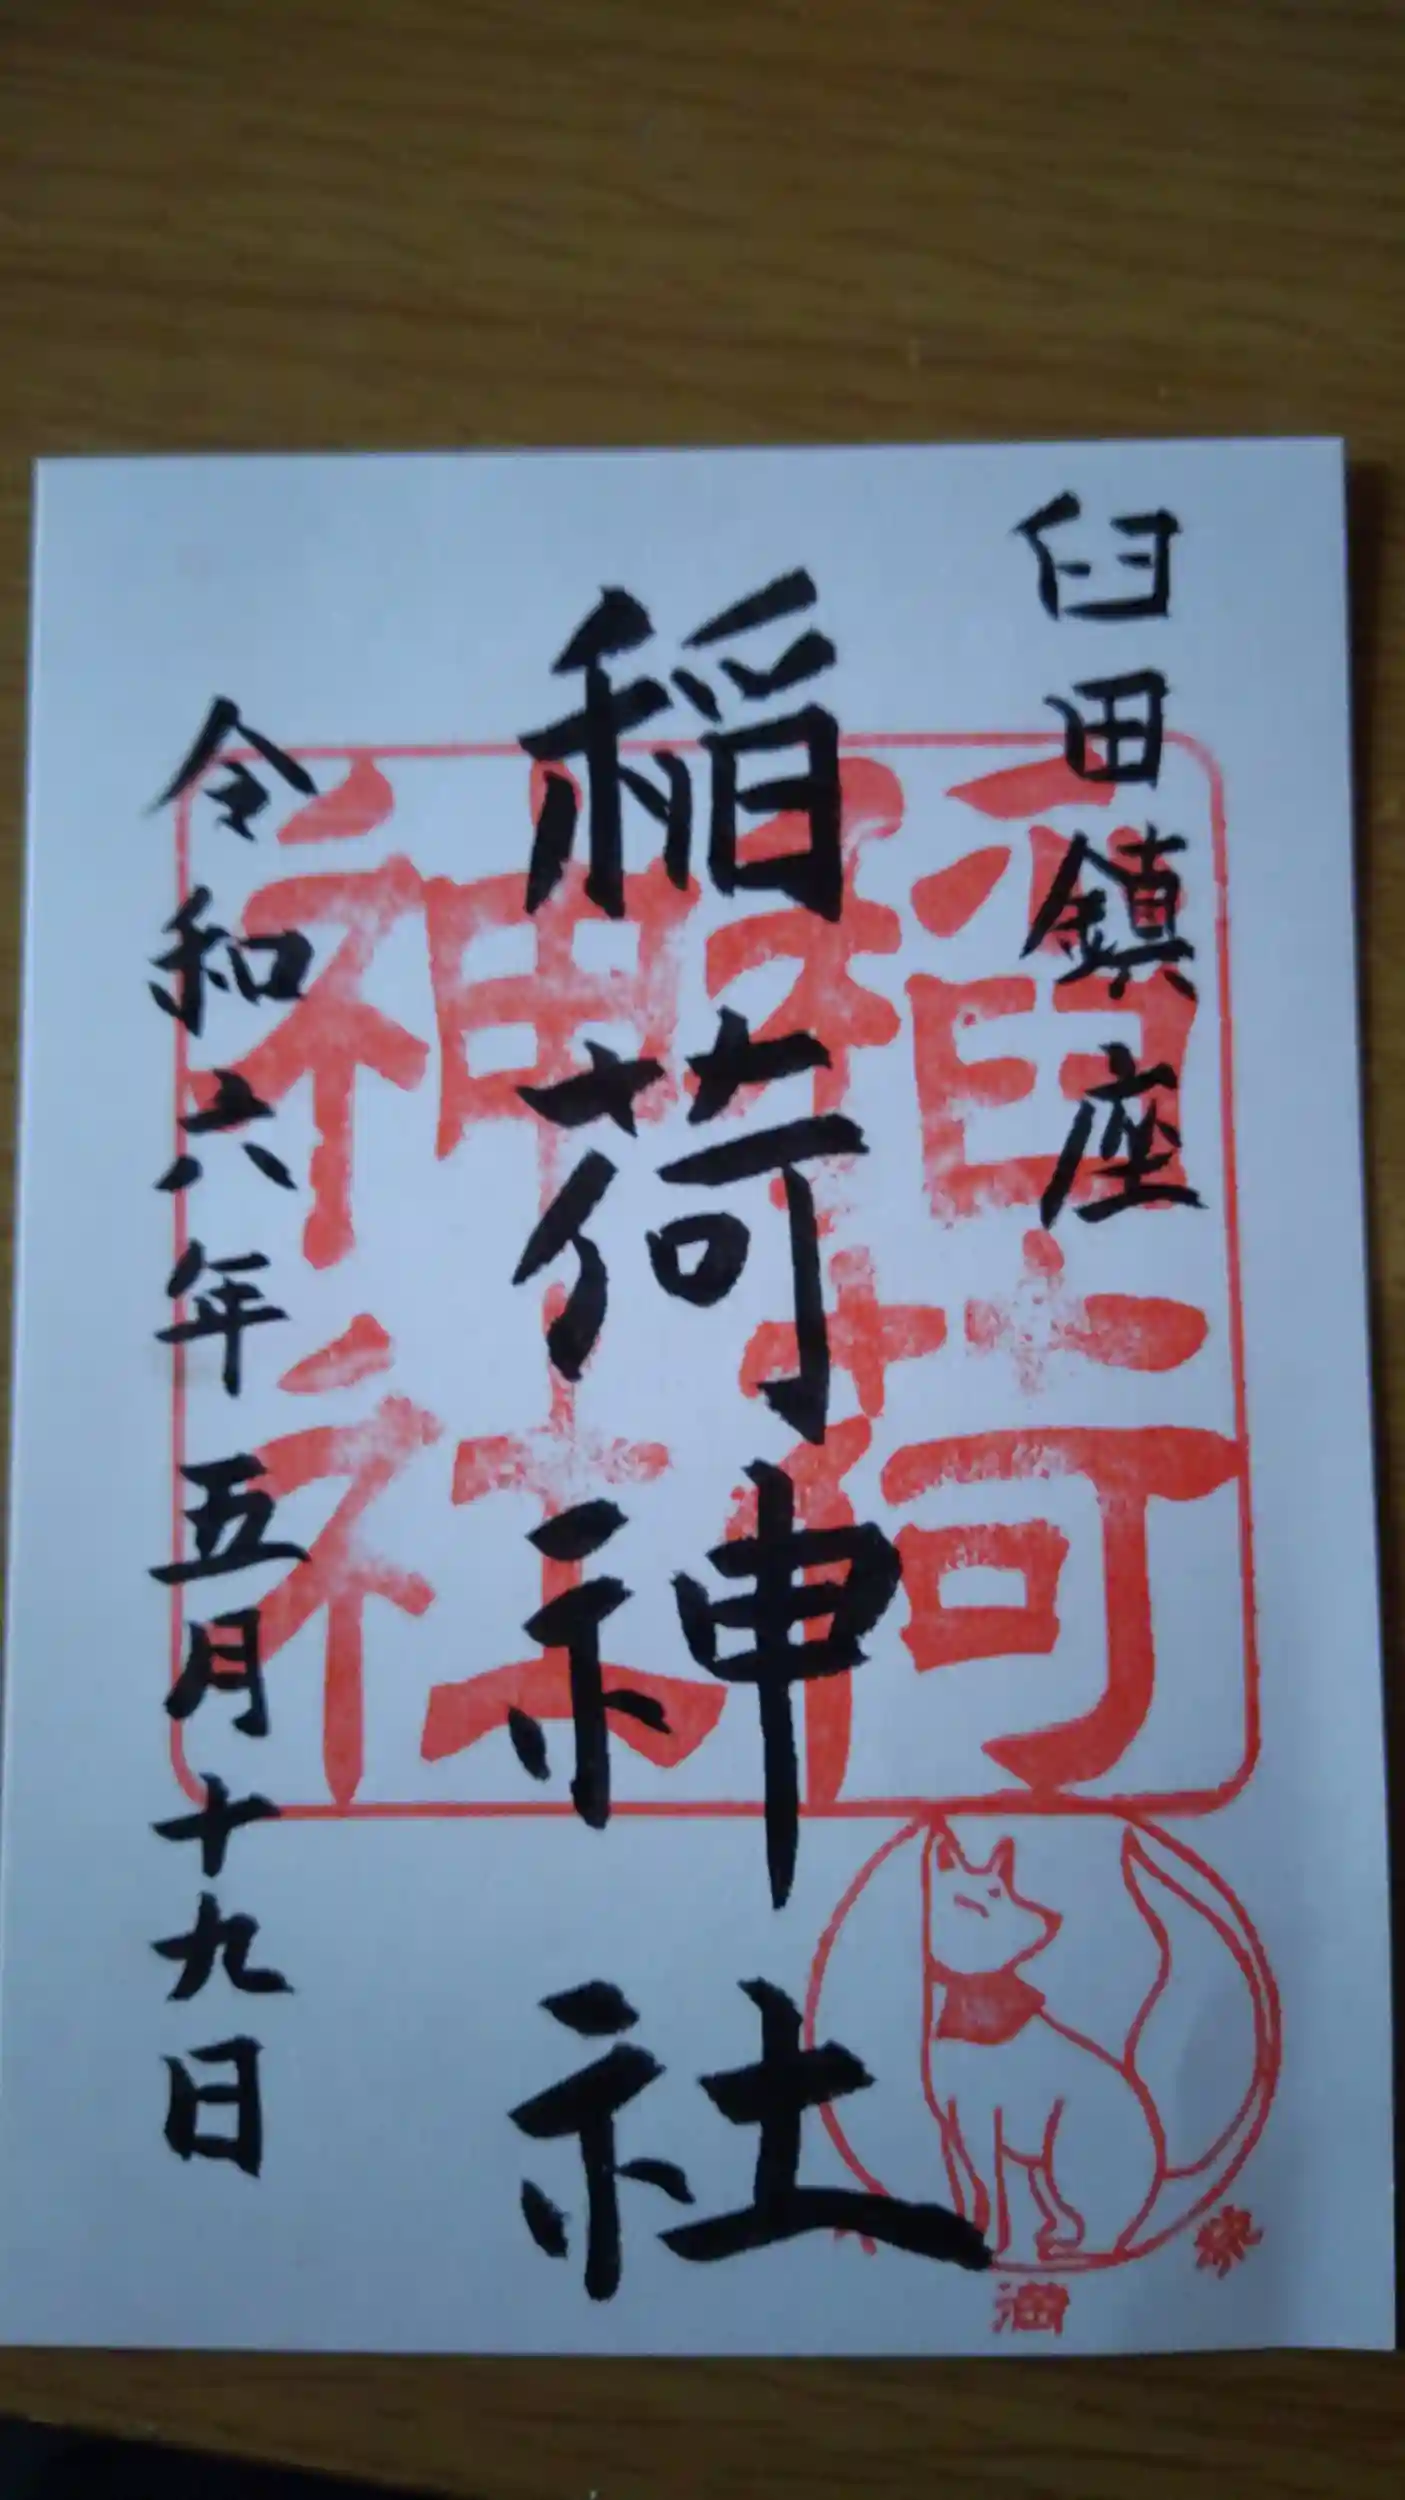 臼田鎮座
稲荷神社
令和六年五月十九日
稲荷
神社